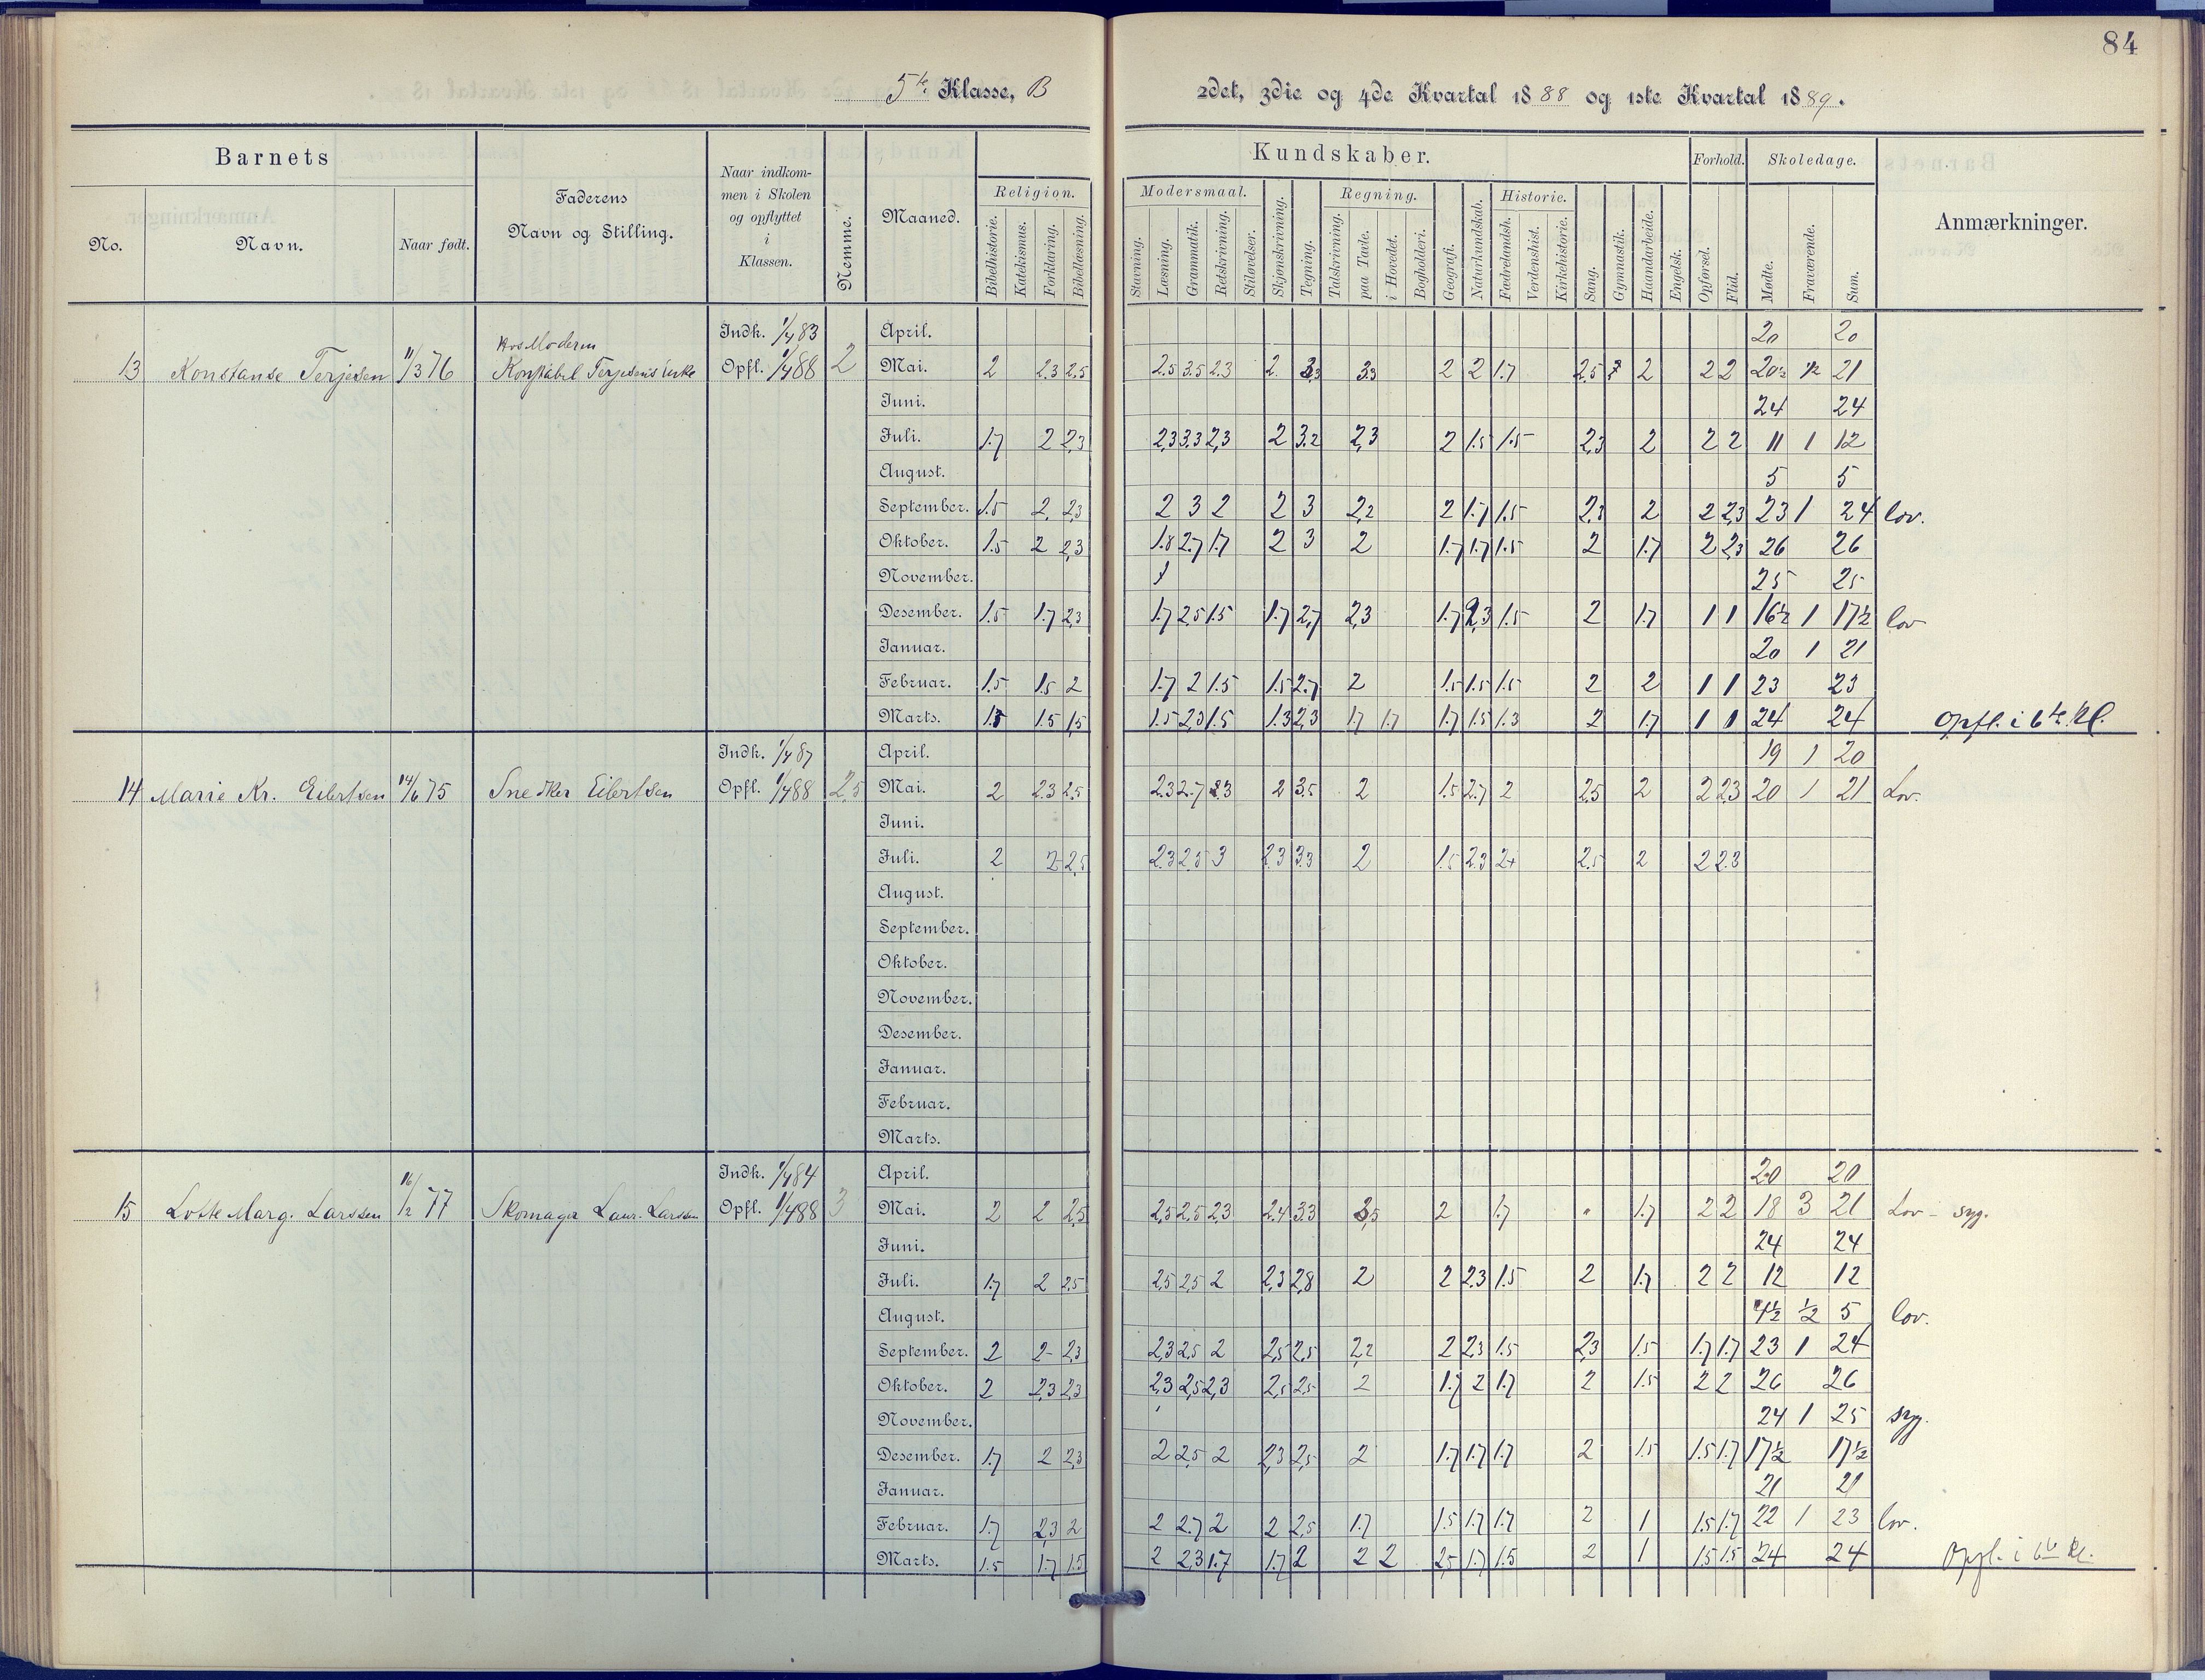 84
5te Klasse, B 2det, 3die og 4de Kvartal 1888 og 1ste Kvartal 1889.
Barnets Faderens Navn og Stilling. Naar indkommen i Skolen og opflyttet i Klassen. Nemme. Maaned. Kundskaber. Forhold. Skoledage. Anmærkninger.
No. Navn. Naar født. Religion. Modersmaal. Regning. Historie.
Bibelhistorie. Katekismus. Forklaring. Bibellæsning. Stavning. Læsning. Grammatik. Retskrivning. Stiløvelser. Skjønskrivning. Tegning. Talskrivning. paa Tavle. i Hovedet. Bogholderi. Geografi. Naturkundskab. Fædrelandsh. Verdenshist. Kirkehistorie. Sang. Gymnastik. Haandarbeide. Engelsk. Opførsel. Flid. Mødte. Fraværende. Sum.
Indk. 1/4 83 April. 20 20
Hos Moderen
13 Konstanse Terjesen 11/3 76 Konstabel Terjesens Enke Opfl. 1/4 88 2 Mai. 2 2.3 2.5 2.5 3.5 2.3 2. 3.3 3.3 2 2 1.7 2.5 2 2 2 20½ ½ 21
Juni. 24 24
Juli. 1.7 2 2,3 2,3 3.3 2,3 2 3.2 2,3 2 1.5 1.5 2,3 2 2 2 11 1 12
August. 5 5
September. 1.5 2. 2,3 2 3 2 2 3 2,2 2 1.7 1.5 2,3 2 2 2,3 23 1 24 lov.
Oktober. 1.5 2 2,3 1.8 2.7 1.7 2 3 2 1.7 1.7 1.5 2 1.7 2 2,3 26 26
November. 25 25
Desember. 1.5 1.7 2,3 1.7 2,5 1.5 1.7 2,7 2,3 1.7 2,3 1.5 2 1.7 1 1 16½ 1 17½ lov
Januar. 20 1 21
Februar. 1.5 1.5 2 1.7 2 1.5 1.5 2.7 2 1.5 1.5 1.5 2 2 1 1 23 23
Marts. 1.5 1.5 1,5 1.5 2,3 1.5 1.3 2,3 1.7 1.7 1.7 1.5 1.3 2 1.7 1 1 24 24 Opfl. i 6te Kl.
Indk. 1/4 87 April. 19 1 20
14 Marie Kr. Eilertsen 14/6 75 Snedker Eilertsen Opfl. 1/4 88 2,5 Mai. 2 2.3 2.5 2.3 2.7 2.3 2 3.5 2 1.5 2.7 2 2,5 2 2 2,3 20 1 21 Lov.
Juni.
Juli. 2 2 2,5 2.3 2.5 3 2.3 3.3 2 1.5 2.3 2+ 2.5 2 2 2.3
August.
September.
Oktober.
November.
Desember.
Januar.
Februar.
Marts.
Indk. 1/4 84 April. 20 20
15 Lotte Marg. Larssen 16/2 77 Skomager Laur. Larssen Opfl. 1/4 88 3 Mai. 2 2 2,5 2,5 2.5 2,3 2.4 3.3 3,5 2 1.7 1.7 2 2 18 3 21 Lov - syg.
Juni. 24 24
Juli. 1.7 2 2.5 2,5 2,5 2 2,3 2,8 2 2 2.3 1.5 2 1.7 2 2 12 12
August. 4½ ½ 5 lov.
September. 2 2 2,3 2,3 2.5 2 2,5 2,5 2,2 2 2,3 1.5 2,3 1.5 1.7 1.7 23 1 24
Oktober. 2 2,3 2,3 2,3 2,5 2,3 2,5 2,5 2 1.7 2 1.7 2 1.5 2 2 26 26
November. 24 1 25 syg.
Desember. 1.7 2 2,3 2 2,5 2 2,3 2,5 2 1.7 1.7 1.7 2 1.5 1.5 1.7 17½ 17½
Januar. 21 21
Februar. 1.7 2,3 2 2 2.7 2 2 2,5 1.7 1.5 1.7 1.7 2 1 1.5 1.7 22 1 23 lov.
Marts. 1.5 1.7 1.5 2 2.3 1.7 1.7 2 2 2 2,5 1.7 1.5 2 1 1.5 1.5 24 24 Opfl. i 6te Kl.